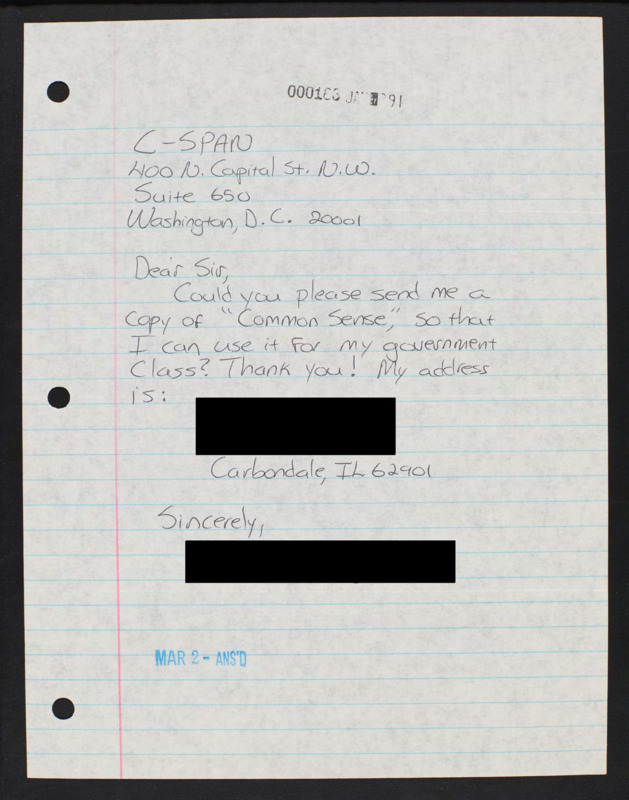 000183 JAN '91
C-SPAN
400 N. Capital St. N.W.
Suite 650
Washington, D.C. 20001
Dear Sir,
Could you please send me a
copy of "Common Sense," so that
I can use it for my government
Class? Thank you! My address
is:
Carbondale, IL 62901
Sincerely,
MAR 2 - ANS'D